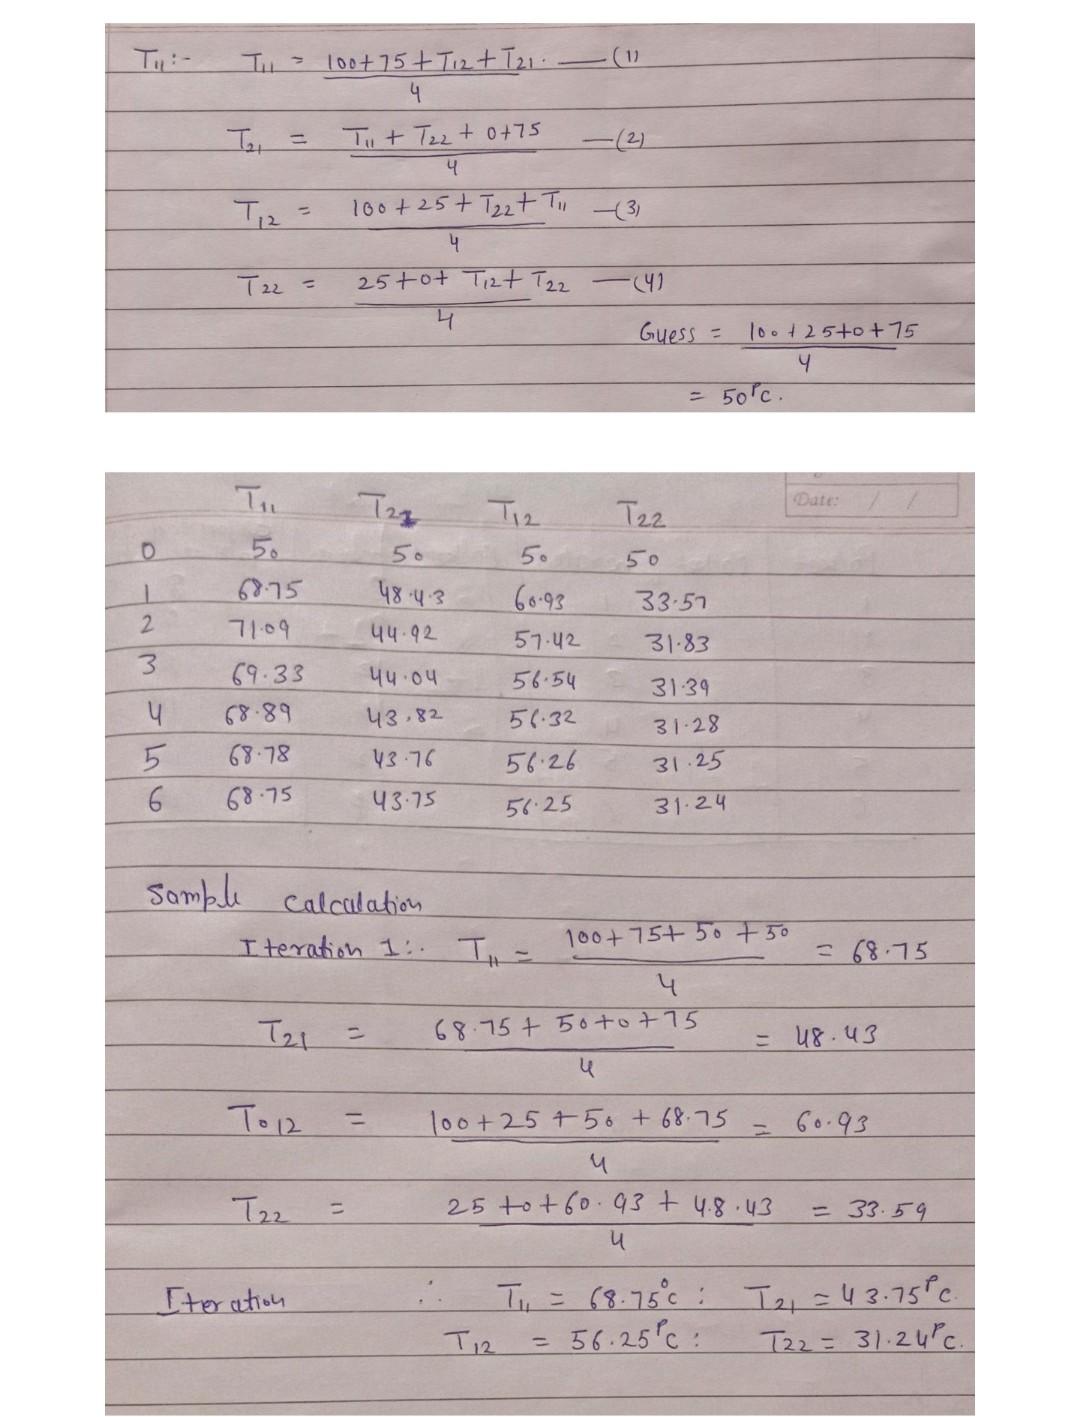 T11 :- T11 = 100+75+T12+T21 . —(1)
4
T21 = T11 + T22 + 0+75 —(2)
4
T12 = 100+25+T22+T11 —(3)
4
T22 = 25+0+ T12+ T22 —(4)
4
Guess = 100+25+0+75
4
= 50°C.
Date: / /
T11 T21 T12 T22
0 50 50 50 50
1 68.75 48.43 60.93 33.59
2 71.09 44.92 57.42 31.83
3 69.33 44.04 56.54 31.39
4 68.89 43.82 56.32 31.28
5 68.78 43.76 56.26 31.25
6 68.75 43.75 56.25 31.24
Sample Calculation
Iteration 1:. T11 = 100+75+50+50 = 68.75
4
T21 = 68.75+50+0+75 = 48.43
4
To12 = 100+25+50+68.75 = 60.93
4
T22 = 25+0+60.93+48.43 = 33.59
4
Iteration ∴ T11 = 68.75°C : T21 = 43.75°C.
T12 = 56.25°C : T22 = 31.24°C.